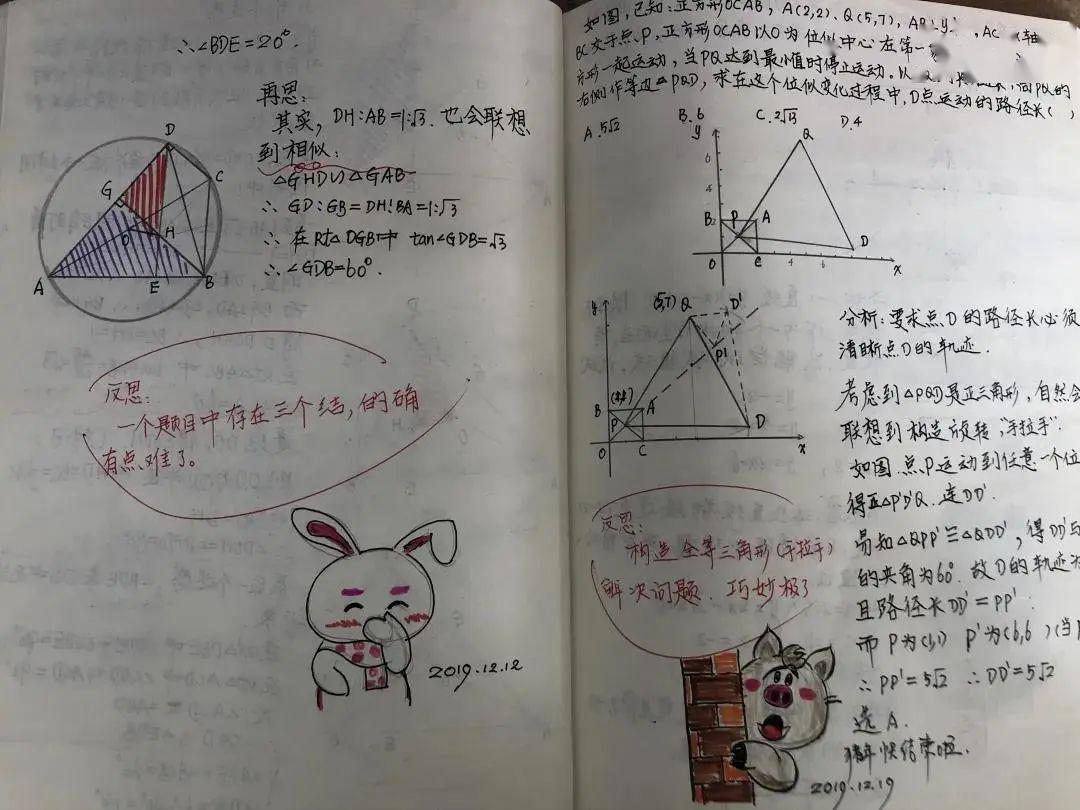 ∴∠BDE=20°.
再思:
其实, DH:AB=1:√3. 也会联想
到相似:
△GHD∽△GAB
∴ GD:GB=DH:BA=1:√3
∴ 在Rt△DGB中 tan∠GDB=√3
∴ ∠GDB=60°.
D
C
G
O
H
A
E
B
反思:
一个题目中存在三个结,的确
有点难了。
2019.12.12
如图,已知:正方形OCAB, A(2,2), Q(5,7), AB⊥y, AC
BC交于点P,正方形OCAB以O为位似中心在第一
一起运动,当PQ达到最小值时停止运动.以
右侧作等边△PQD,求在这个位似变化过程中,D点运动的路径长( )
A.5√2 B.6 C.2√13 D.4
y
Q
6
4
B
2
P
A
D
O
C
4
6
x
y
(5,7)
Q
D'
P'
(2,2)
B
A
P
D
O
C
x
分析:要求点D的路径长必须
清晰点D的轨迹.
若虑到△PQD是正三角形,自然会
联想到构造旋转,"手拉手".
如图.点P运动到任意一个位
得正△P'D'Q.连DD'.
易知△QPP'≌△QDD',得DD'与
的夹角为60°.故D的轨迹为
且路径长DD'=PP'.
而P为(1,1) P'为(6,6)(当P
∴ PP'=5√2 ∴DD'=5√2
选A.
猪年快结束啦.
反思:
构造全等三角形(手拉手)
解决问题.巧妙极了
2019.12.19